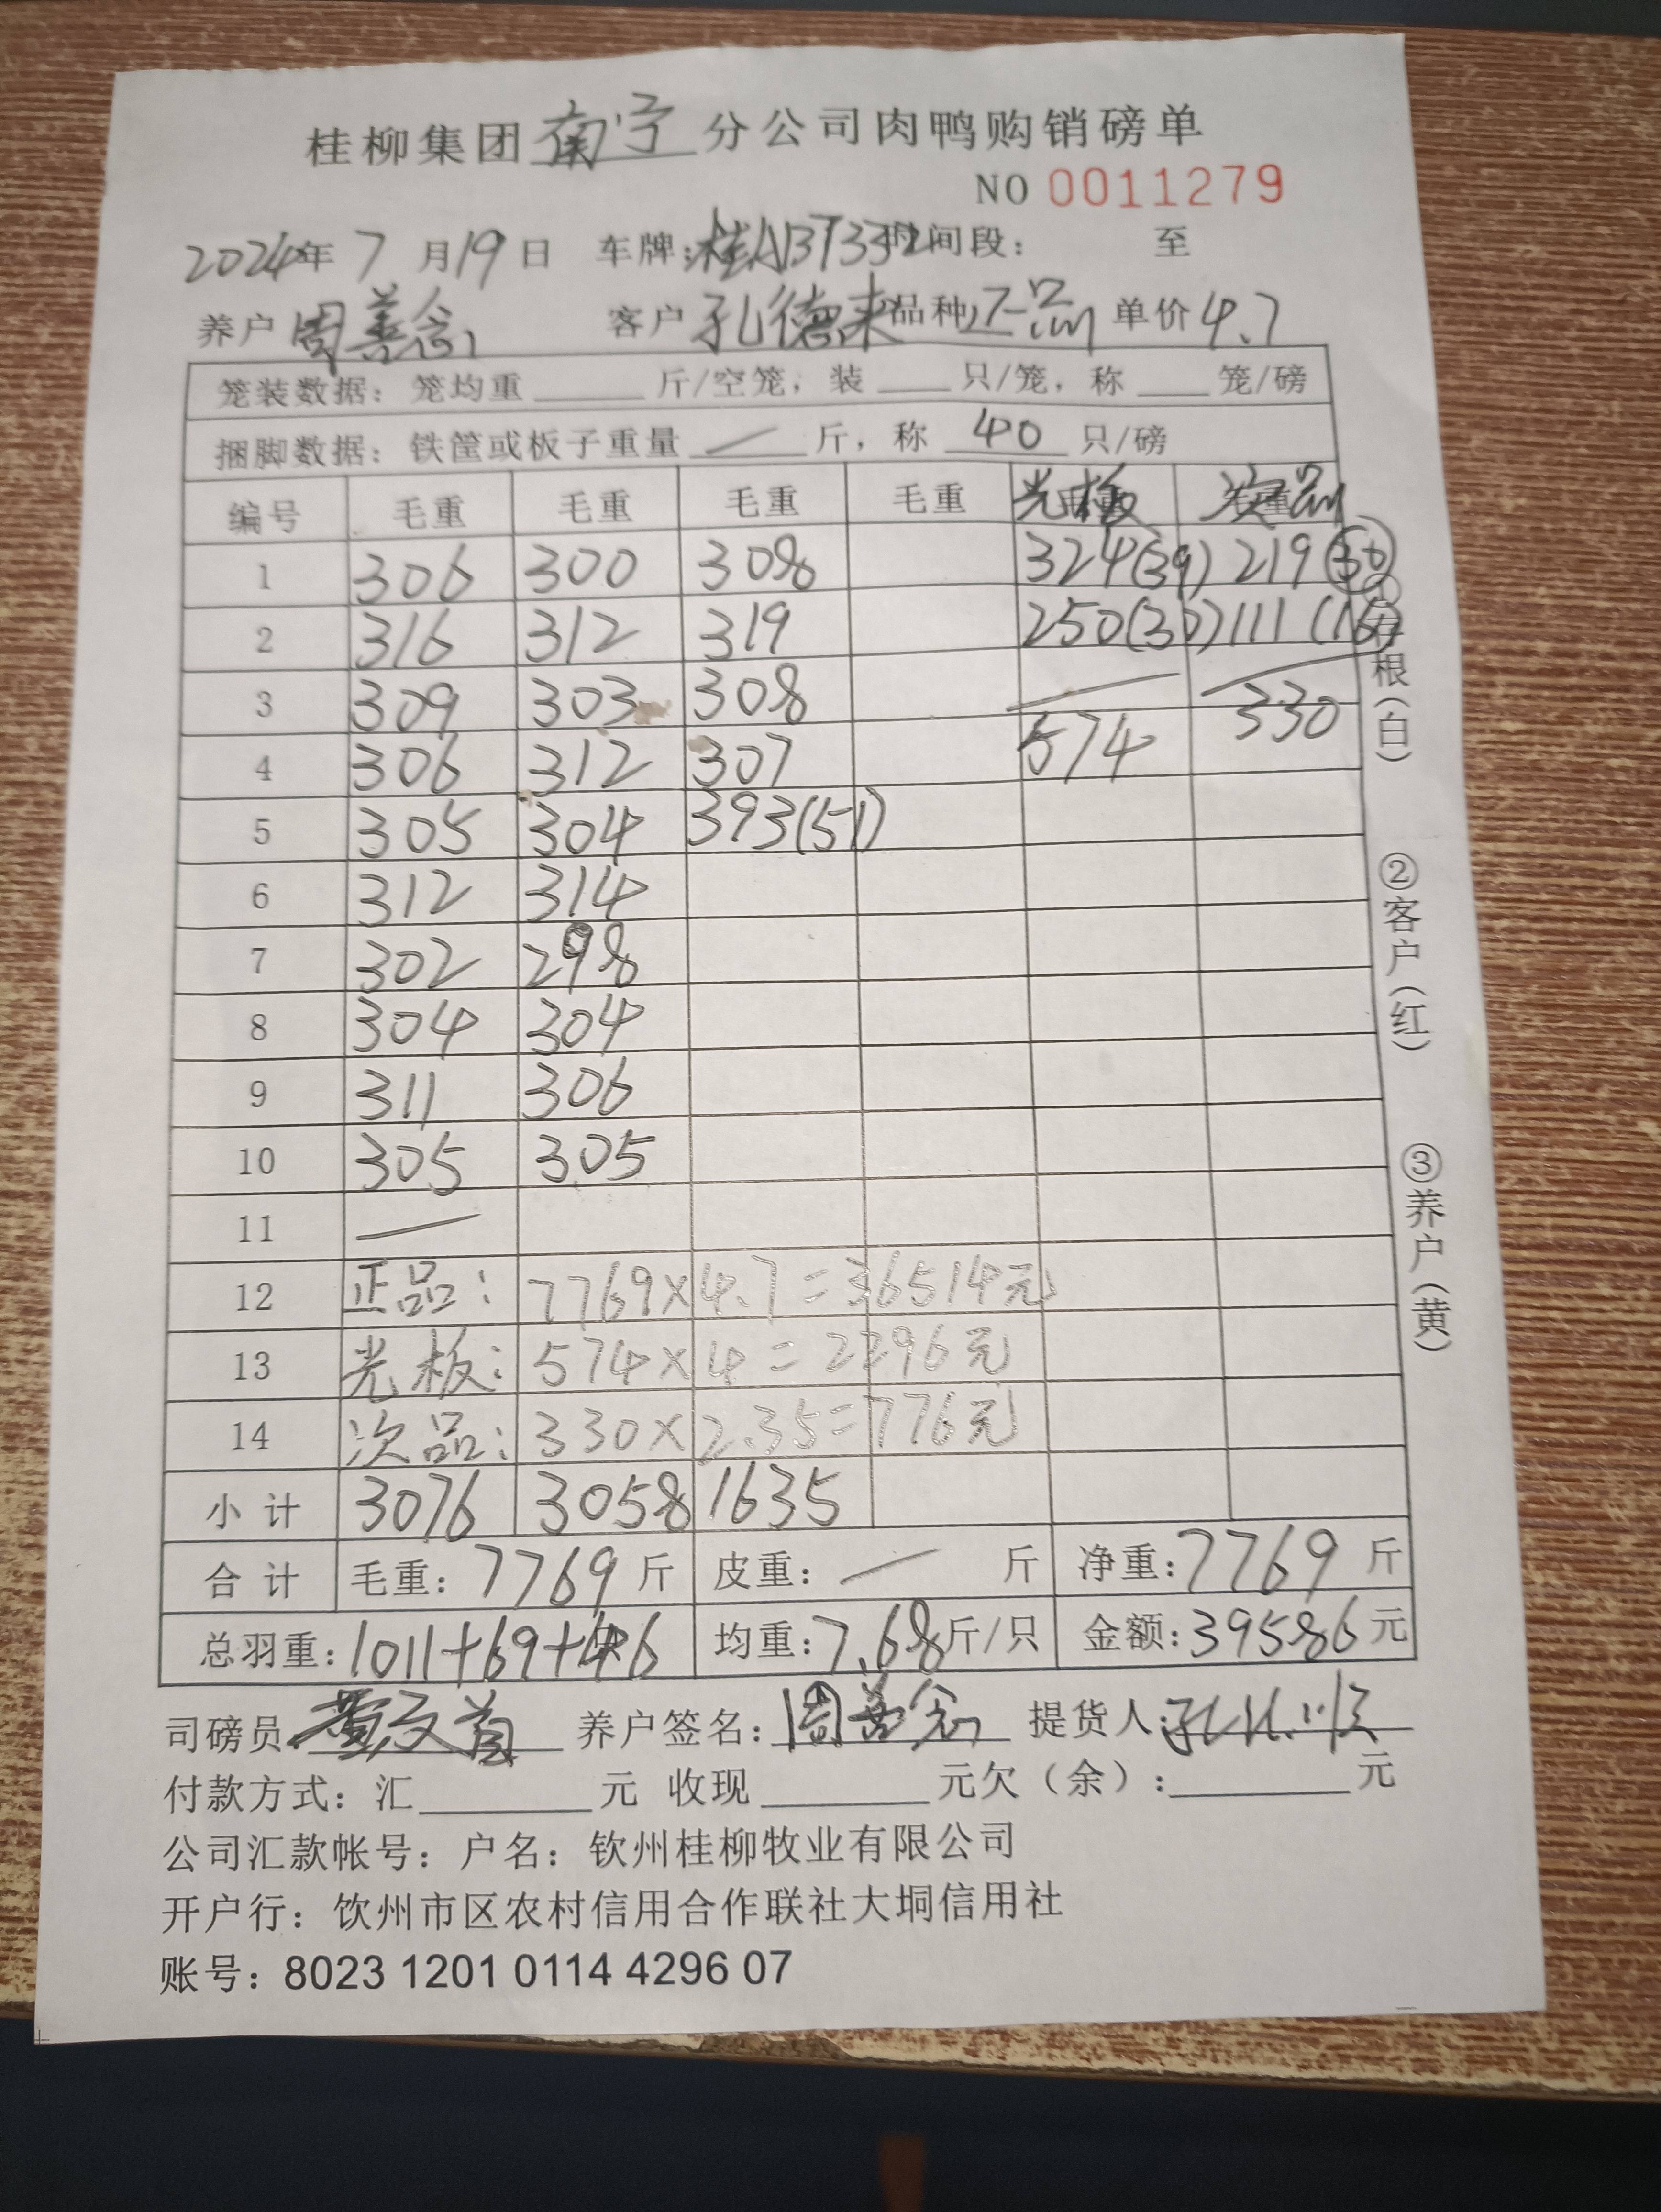 桂柳集团南宁分公司肉鸭购销磅单
NO 0011279
2024年 7 月19日 车牌:桂AB7332时间段: 至
养户 周善念 客户 孔德来 品种 正品 单价 4.7
笼装数据: 笼均重 斤/空笼, 装 只/笼, 称 笼/磅
捆脚数据: 铁筐或板子重量 — 斤, 称 40 只/磅
编号 毛重 毛重 毛重 毛重 光板 次品
1 306 300 308 324(39) 219(30)
2 316 312 319 250(30) 111(16)
3 309 303 308
4 306 312 307 574 330
5 305 304 393(51)
6 312 314
7 302 298
8 304 304
9 311 306
10 305 305
11 —
12 正品: 7769×4.7=36514元
13 光板: 574×4=2296元
14 次品: 330×2.35=776元
小计 3076 3058 1635
合计 毛重: 7769 斤 皮重: — 斤 净重: 7769 斤
总羽重: 1011+69+46 均重: 7.68斤/只 金额: 39586元
司磅员: 养户签名: 周善念 提货人:
付款方式: 汇 元 收现 元欠(余): 元
公司汇款帐号: 户名: 钦州桂柳牧业有限公司
开户行: 饮州市区农村信用合作联社大垌信用社
账号: 8023 1201 0114 4296 07
存根(白)
②客户(红)
③养户(黄)